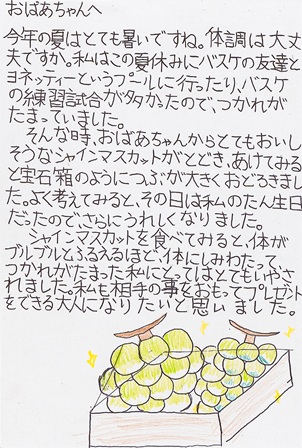 おばあちゃんへ
今年の夏はとても暑いですね。体調は大丈
夫ですか。私はこの夏休みにバスケの友達と
ヨネッティーというプールに行ったり、バスケ
の練習試合が多かったので、つかれが
たまっていました。
そんな時、おばあちゃんからとてもおいし
そうなシャインマスカットがとどき、あけてみる
と宝石箱のようにつぶが大きくおどろきまし
た。よく考えてみると、その日は私のたん生日
だったので、さらにうれしくなりました。
シャインマスカットを食べてみると、体が
ブルブルとふるえるほど、体にしみわたって、
つかれがたまった私にとってはとてもいやさ
れました。私も相手の事をおもってプレゼント
をできる大人になりたいと思いました。